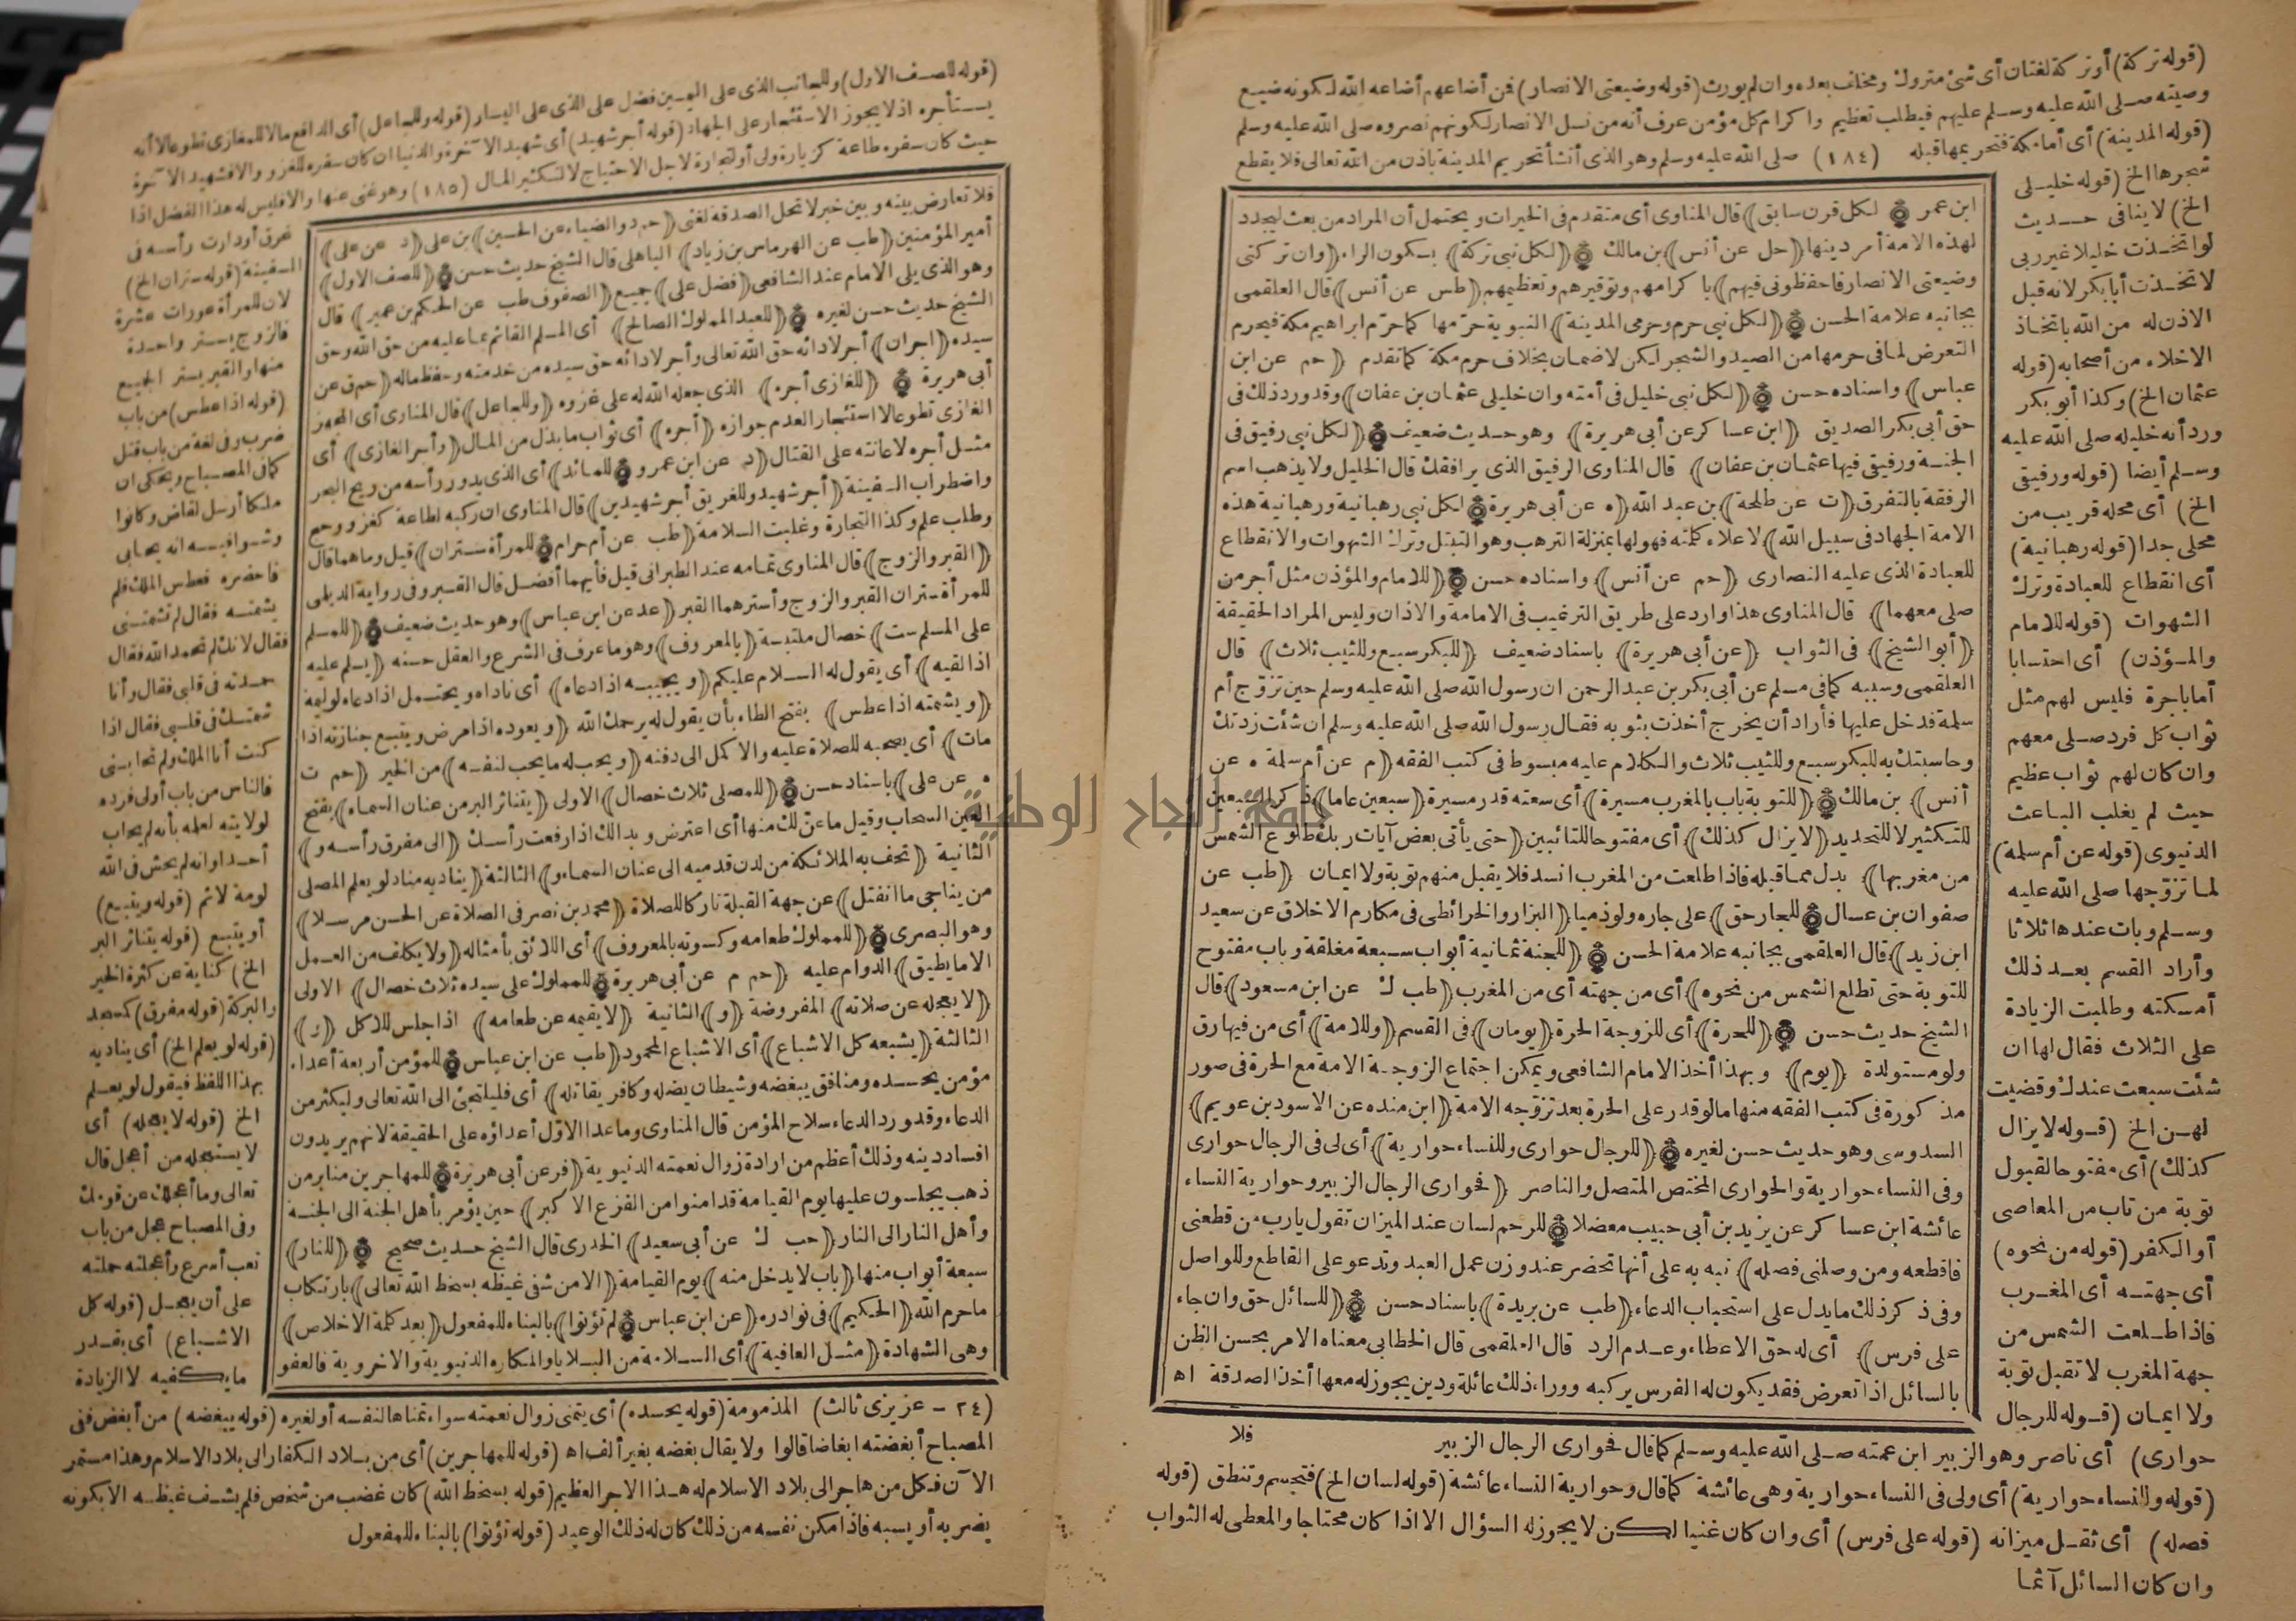 (قوله تركة) أو تركة لغتان أى شئ متروك ومخلف بعده وان لم يورث (قوله وضيعتى الانصار) فمن أضاعهم أضاعه الله لكونه ضيع
وصيته صلى الله عليه وسلم عليهم فيطلب تعظيم واكرام كل مؤمن عرف أنه من نسل الانصار لكونهم نصروه صلى الله عليه وسلم
(قوله المدينة) أى أما مكة فتحريمها قبله (١٨٤) صلى الله عليه وسلم وهو الذى أنشأ تحريم المدينة باذن من الله تعالى فلا يقطع
شجرها الخ (قوله خليلى
الخ) لا ينافى حديث
لو اتخذت خليلا غير ربى
لاتخذت أبا بكر لانه قبل
الاذن له من الله باتخاذ
الاخلاء من أصحابه (قوله
عثمان الخ) وكذا أبو بكر
ورد أنه خليله صلى الله عليه
وسلم أيضا (قوله ورفيقى
الخ) أى محله قريب من
محلى جدا (قوله رهبانية)
أى انقطاع للعبادة وترك
الشهوات (قوله للامام
والمؤذن) أى احتسابا
أما باجرة فليس لهم مثل
ثواب كل فرد صلى معهم
وان كان لهم ثواب عظيم
حيث لم يغلب الباعث
الدنيوى (قوله عن أم سلمة)
لما تزوجها صلى الله عليه
وسلم وبات عندها ثلاثا
وأراد القسم بعد ذلك
أمسكته وطلبت الزيادة
على الثلاث فقال لها ان
شئت سبعت عندك وقضيت
لهن الخ (قوله لا يزال
كذلك) أى مفتوحا لقبول
توبة من تاب من المعاصى
أو الكفر (قوله من نحوه)
أى جهته أى المغرب
فاذا طلعت الشمس من
جهة المغرب لا تقبل توبة
ولا ايمان (قوله للرجال
ابن عمر ۞ لكل قرن سابق) قال المناوى أى متقدم فى الخيرات ويحتمل أن المراد من بعث ليجدد
لهذه الامة أمر دينها (حل عن أنس) بن مالك ۞ (لكل نبى تركة) بسكون الراء (وان تركتى
وضيعتى الانصار فاحفظونى فيهم) باكرامهم وتوقيرهم وتعظيمهم (طس عن أنس) قال العلقمى
بجانبه علامة الحسن ۞ (لكل نبى حرم وحرمى المدينة) النبوية حرّمها كما حرّم ابراهيم مكة فيحرم
التعرض لما فى حرمها من الصيد والشجر لكن لا ضمان بخلاف حرم مكة كما تقدم (حم عن ابن
عباس) واسناده حسن ۞ (لكل نبى خليل فى أمته وان خليلى عثمان بن عفان) وقد ورد ذلك فى
حق أبى بكر الصديق (ابن عساكر عن أبى هريرة) وهو حديث ضعيف ۞ (لكل نبى رفيق فى
الجنة ورفيقى فيها عثمان بن عفان) قال المناوى الرفيق الذى يرافقك قال الخليل ولا يذهب اسم
الرفقة بالتفرق (ت عن طلحة) بن عبد الله (ه عن أبى هريرة ۞ لكل نبى رهبانية ورهبانية هذه
الامة الجهاد فى سبيل الله) لاعلاء كلمته فهو لها بمنزلة الترهب وهو التبتل وترك الشهوات والانقطاع
للعبادة الذى عليه النصارى (حم عن أنس) واسناده حسن ۞ (للامام والمؤذن مثل أجر من
صلى معهما) قال المناوى هذا وارد على طريق الترغيب فى الامامة والاذان وليس المراد الحقيقة
(أبو الشيخ) فى الثواب (عن أبى هريرة) باسناد ضعيف (للبكر سبع وللثيب ثلاث) قال
العلقمى وسببه كما فى مسلم عن أبى بكر بن عبد الرحمن ان رسول الله صلى الله عليه وسلم حين تزوّج أم
سلمة فدخل عليها فأراد أن يخرج أخذت بثوبه فقال رسول الله صلى الله عليه وسلم ان شئت زدتك
وحاسبتك به للبكر سبع وللثيب ثلاث والكلام عليه مبسوط فى كتب الفقه (م عن أم سلمة ه عن
أنس) بن مالك ۞ (للتوبة باب بالمغرب مسيرة) أى سعته قدر مسيرة (سبعين عاما) ذكر السبعين
للتكثير لا للتحديد (لا يزال كذلك) أى مفتوحا للتائبين (حتى يأتى بعض آيات ربك طلوع الشمس
من مغربها) بدل مما قبله فاذا طلعت من المغرب انسد فلا يقبل منهم توبة ولا ايمان (طب عن
صفوان بن عسال ۞ للجار حق) على جاره ولو ذميا (البزار والخرائطى فى مكارم الاخلاق عن سعيد
ابن زيد) قال العلقمى بجانبه علامة الحسن ۞ (للجنة ثمانية أبواب سبعة مغلقة وباب مفتوح
للتوبة حتى تطلع الشمس من نحوه) أى من جهته أى من المغرب (طب ك عن ابن مسعود) قال
الشيخ حديث حسن ۞ (للحرة) أى للزوجة الحرة (يومان) فى القسم (وللامة) أى من فيها رق
ولو مستولدة (يوم) وبهذا أخذ الامام الشافعى ويمكن اجتماع الزوجة الامة مع الحرة فى صور
مذكورة فى كتب الفقه منها ما لو قدر على الحرة بعد تزوّجه الامة (ابن منده عن الاسود بن عويم)
السدوسى وهو حديث حسن لغيره ۞ (للرجال حوارى وللنساء حوارية) أى لى فى الرجال حوارى
وفى النساء حوارية والحوارى المختص المتصل والناصر (فحوارى الرجال الزبير وحوارية النساء
عائشة ابن عساكر عن يزيد بن أبى حبيب معضلا ۞ للرحم لسان عند الميزان تقول يارب من قطعنى
فاقطعه ومن وصلنى فصله) نبه به على أنها تحضر عند وزن عمل العبد وتدعو على القاطع وللواصل
وفى ذكر ذلك ما يدل على استحباب الدعاء (طب عن بريدة) باسناد حسن ۞ (للسائل حق وان جاء
على فرس) أى له حق الاعطاء وعدم الرد قال العلقمى قال الخطابى معناه الامر بحسن الظن
بالسائل اذا تعرض فقد يكون له الفرس يركبه ووراء ذلك عائلة ودين يجوز له معها أخذ الصدقة اه
فلا
حوارى) أى ناصر وهو الزبير ابن عمته صلى الله عليه وسلم كما قال فحوارى الرجال الزبير
(قوله وللنساء حوارية) أى ولى فى النساء حوارية وهى عائشة كما قال وحوارية النساء عائشة (قوله لسان الخ) فتجسم وتنطق (قوله
فصله) أى ثقل ميزانه (قوله على فرس) أى وان كان غنيا لكن لا يجوز له السؤال الا اذا كان محتاجا والمعطى له الثواب
وان كان السائل آثما
(قوله للصف الاول) وللجانب الذى على اليمين فضل على الذى على اليسار (قوله وللجاعل) أى الدافع مالا للمغازى تطوعا لا أنه
يستأجره اذ لا يجوز الاستئجار على الجهاد (قوله أجر شهيد) أى شهيد الآخرة والدنيا ان كان سفره للغزو والا فشهيد الآخرة
حيث كان سفره طاعة كزيارة ولى أو لتجارة لاجل الاحتياج لا لتكثير المال (١٨٥) وهو غنى عنها والا فليس له هذا الفضل اذا
غرق أو دارت رأسه فى
السفينة (قوله ستران الخ)
لان للمرأة عورات عشرة
فالزوج يستر واحدة
منها والقبر يستر الجميع
(قوله اذا عطس) من باب
ضرب وفى لغة من باب قتل
كما فى المصباح ويحكى ان
ملكا أرسل لقاض وكانوا
وشوا فيه انه يحابى
فاحضره فعطس الملك فلم
يشمته فقال لم تشمتنى
فقال لانك لم تحمد الله فقال
حمدته فى قلبى فقال وأنا
شمتك فى قلبى فقال اذا
كنت أنا الملك ولم تحابنى
فالناس من باب أولى فرده
لولايته لعلمه بأنه لم يحاب
أحدا وانه لم يخش فى الله
لومة لائم (قوله ويتبع)
أو يتبع (قوله يتناثر البر
الخ) كناية عن كثرة الخير
والبركة (قوله مفرق) كمسجد
(قوله لو يعلم الخ) أى يناديه
بهذا اللفظ فيقول لو يعلم
الخ (قوله لا يعجله) أى
لا يستعجله من أعجل قال
تعالى وما أعجلك عن قومك
وفى المصباح عجل من باب
تعب أسرع وأعجلته حملته
على أن يعجل (قوله كل
الاشباع) أى بقدر
ما يكفيه لا الزيادة
فلا تعارض بينه وبين خبر لا تحل الصدقة لغنى (حم د والضياء عن الحسين) بن على (د عن على)
أمير المؤمنين (طب عن الهرماس بن زياد) الباهلى قال الشيخ حديث حسن ۞ (للصف الاول)
وهو الذى يلى الامام عند الشافعى (فضل على) جميع (الصفوف طب عن الحكم بن عمير) قال
الشيخ حديث حسن لغيره ۞ (للعبد المملوك الصالح) أى المسلم القائم بما عليه من حق الله وحق
سيده (اجران) أجر لادائه حق الله تعالى وأجر لادائه حق سيده من خدمته وحفظ ماله (حم ق عن
أبى هريرة ۞ (للغازى أجره) الذى جعله الله له على غزوه (وللجاعل) قال المناوى أى المجهز
الغازى تطوعا لا استئجارا لعدم جوازه (أجره) أى ثواب ما بذل من المال (وأجر الغازى) أى
مثل أجره لاعانته على القتال (د عن ابن عمرو ۞ للمائد) أى الذى يدور رأسه من ريح البحر
واضطراب السفينة (أجر شهيد وللغريق أجر شهيدين) قال المناوى ان ركبه لطاعة كغزو وحج
وطلب علم وكذا التجارة وغلبت السلامة (طب عن أم حرام ۞ للمرأة ستران) قيل وما هما قال
(القبر والزوج) قال المناوى تمامه عند الطبرانى قيل فأيهما أفضل قال القبر وفى رواية الديلمى
للمرأة ستران القبر والزوج وأسترهما القبر (عد عن ابن عباس) وهو حديث ضعيف ۞ (للمسلم
على المسلم ست) خصال ملتبسة (بالمعروف) وهو ما عرف فى الشرع والعقل حسنه (يسلم عليه
اذا لقيه) أى يقول له السلام عليكم (ويجيبه اذا دعاه) أى ناداه ويحتمل اذا دعاه لوليمة
(ويشمته اذا عطس) بفتح الطاء بأن يقول له يرحمك الله (ويعوده اذا مرض ويتبع جنازته اذا
مات) أى يصحبه للصلاة عليه والاكمل الى دفنه (ويحب له ما يحب لنفسه) من الخير (حم ت
ه عن على) باسناد حسن ۞ (للمصلى ثلاث خصال) الاولى (يتناثر البر من عنان السماء) بفتح
العين السحاب وقيل ما عنّ لك منها أى اعترض وبدا لك اذا رفعت رأسك (الى مفرق رأسه و)
الثانية (تحف به الملائكة من لدن قدميه الى عنان السماء و) الثالثة (يناديه مناد لو يعلم المصلى
من يناجى ما انفتل) عن جهة القبلة تاركا للصلاة (محمد بن نصر فى الصلاة عن الحسن مرسلا)
وهو البصرى ۞ (للمملوك طعامه وكسوته بالمعروف) أى اللائق بأمثاله (ولا يكلف من العمل
الا ما يطيق) الدوام عليه (حم م عن أبى هريرة ۞ للمملوك على سيده ثلاث خصال) الاولى
(لا يعجله عن صلاته) المفروضة (و) الثانية (لا يقيمه عن طعامه) اذا جلس للاكل (و)
الثالثة (يشبعه كل الاشباع) أى الاشباع المحمود (طب عن ابن عباس ۞ للمؤمن أربعة أعداء
مؤمن يحسده ومنافق يبغضه وشيطان يضله وكافر يقاتله) أى فليلتجئ الى الله تعالى وليكثر من
الدعاء وقد ورد الدعاء سلاح المؤمن قال المناوى وما عدا الاوّل أعداؤه على الحقيقة لانهم يريدون
افساد دينه وذلك أعظم من ارادة زوال نعمته الدنيوية (فر عن أبى هريرة ۞ للمهاجرين منابر من
ذهب يجلسون عليها يوم القيامة قد امنوا من الفزع الاكبر) حين يؤمر بأهل الجنة الى الجنة
وأهل النار الى النار (حب ك عن أبى سعيد) الخدرى قال الشيخ حديث صحيح ۞ (للنار)
سبعة أبواب منها (باب لا يدخل منه) يوم القيامة (الا من شفى غيظه بسخط الله تعالى) بارتكاب
ما حرم الله (الحكيم) فى نوادره (عن ابن عباس ۞ لم تؤتوا) بالبناء للمفعول (بعد كلمة الاخلاص)
وهى الشهادة (مثل العافية) أى السلامة من البلايا والمكاره الدنيوية والاخروية فالعفو
(٢٤ - عزيزى ثالث) المذمومة (قوله يحسده) أى يتمنى زوال نعمته سواء تمناها لنفسه أو لغيره (قوله يبغضه) من أبغض ففى
المصباح أبغضته ابغاضا قالوا ولا يقال بغضه بغير ألف اه (قوله للمهاجرين) أى من بلاد الكفار الى بلاد الاسلام وهذا مستمر
الآن فكل من هاجر الى بلاد الاسلام له هذا الاجر العظيم (قوله بسخط الله) كان غضب من شخص فلم يشف غيظه الا بكونه
يضربه أو يسبه فاذا مكن نفسه من ذلك كان له ذلك الوعيد (قوله تؤتوا) بالبناء للمفعول
جامعة النجاح الوطنية